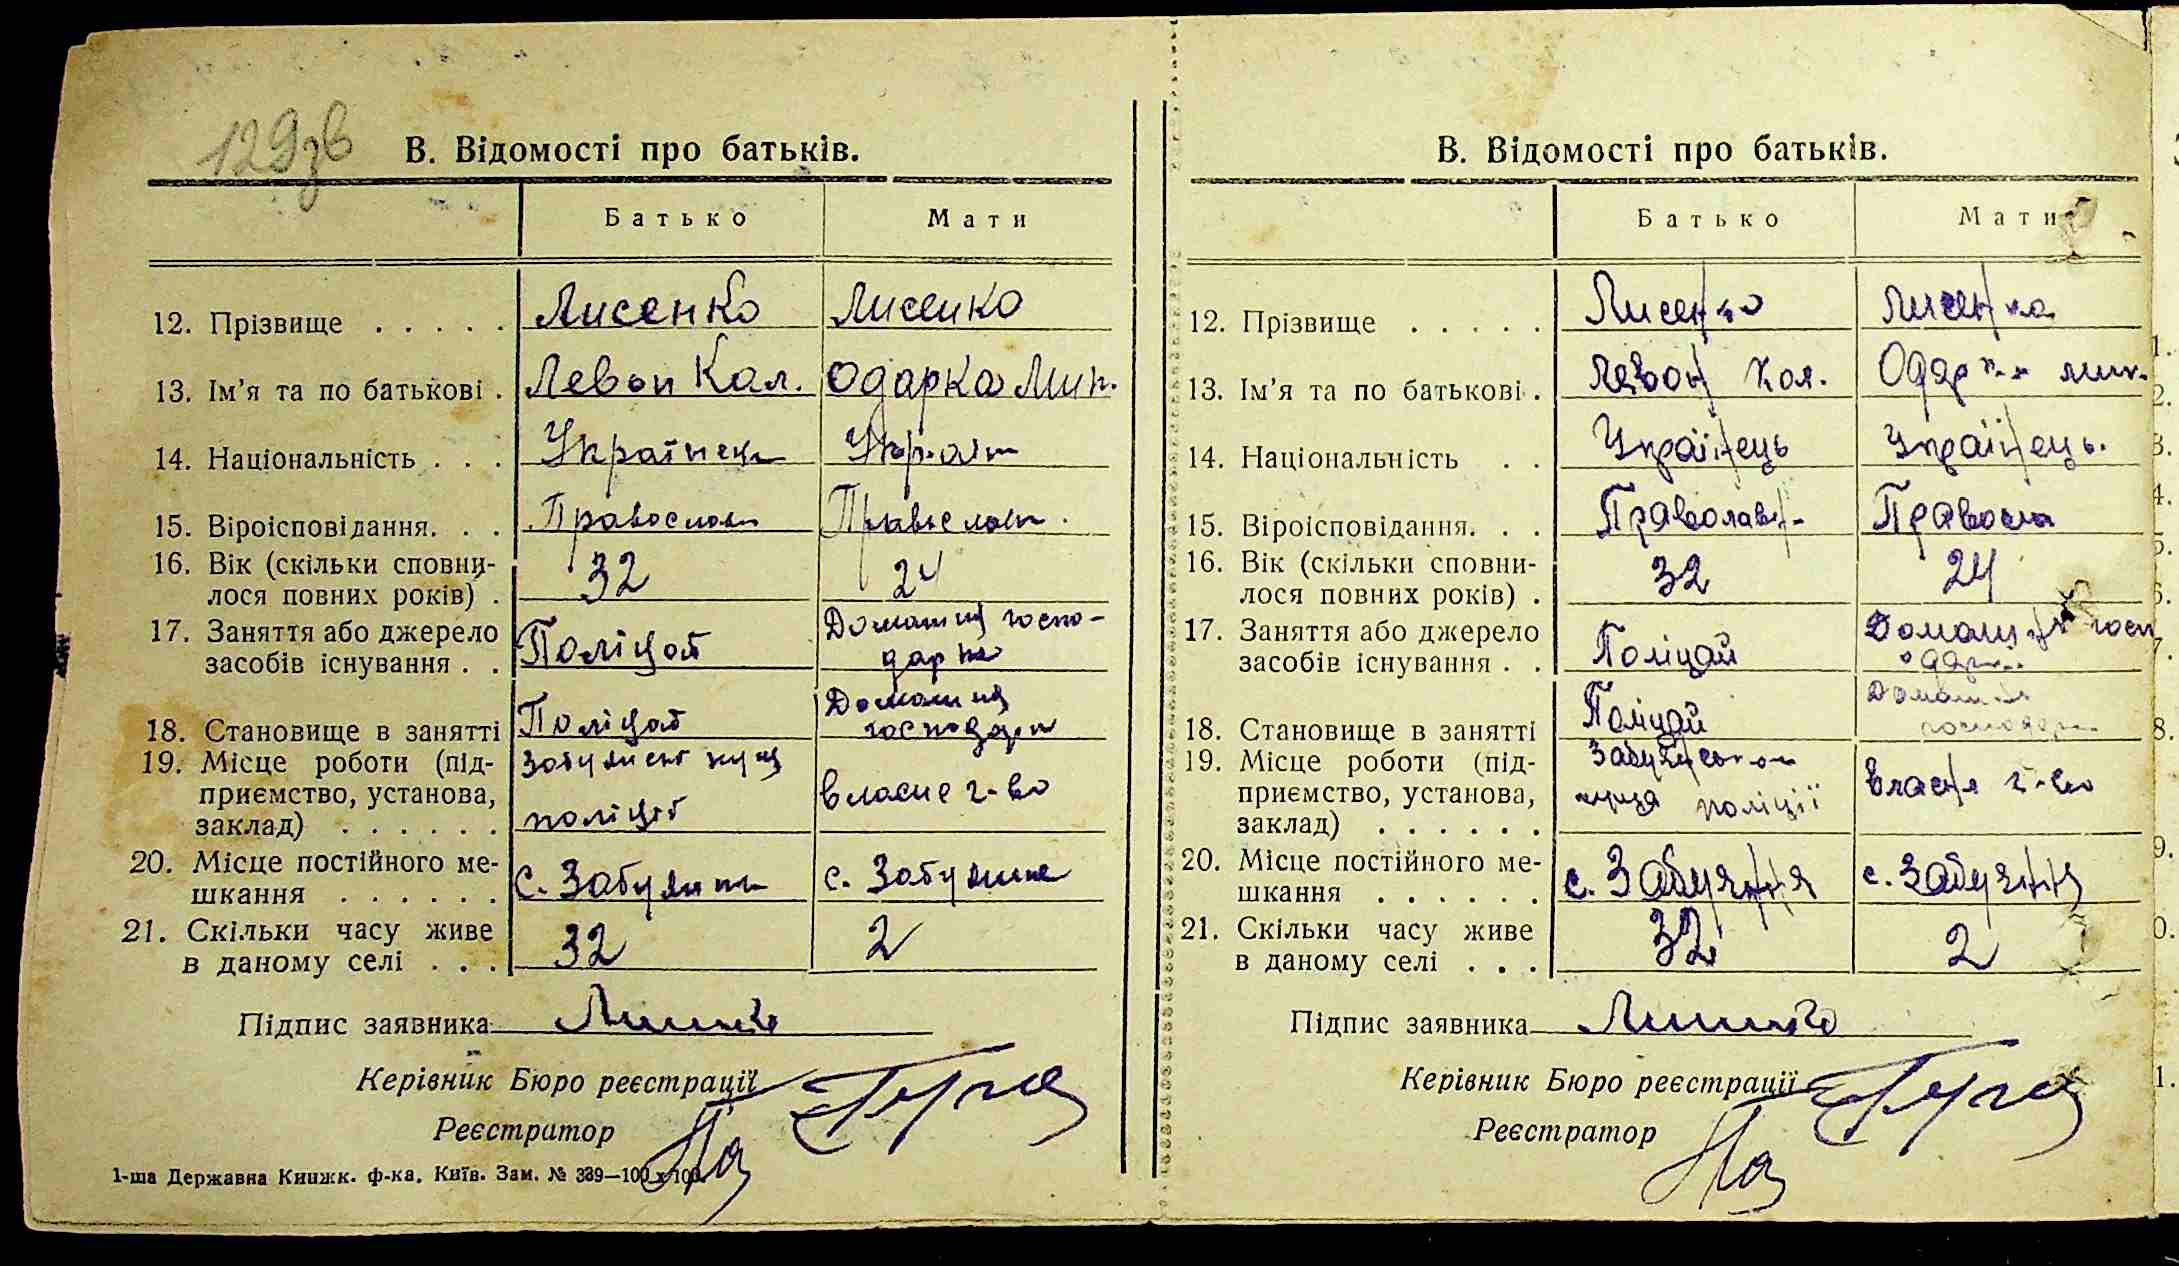 129зв
В. Відомості про батьків.
Батько Мати
12. Прізвище . . . . . Лисенко Лисенко
13. Ім'я та по батькові . Левон Кал. Одарка Мик.
14. Національність . . . Українец
15. Віроісповідання. . . Православн Православн.
16. Вік (скільки сповни-
лося повних років) . 32 24
17. Заняття або джерело
засобів існування . . Поліцай Домашня госпо-
дарка
18. Становище в занятті Поліцай Домашня
господар
19. Місце роботи (під-
приємство, установа,
заклад) . . . . . . поліції власне г-во
20. Місце постійного ме-
шкання . . . . . . с. Забуяння с. Забуяння
21. Скільки часу живе
в даному селі . . . 32 2
Підпис заявника
Керівник Бюро реєстрації
Реєстратор
1-ша Державна Книжк. ф-ка, Київ. Зам. № 339—100 х 100.
В. Відомості про батьків.
Батько Мати
12. Прізвище . . . . . Лисенко Лисенко
13. Ім'я та по батькові . Левон Кал. Одарка Мик.
14. Національність . . Українець Українець.
15. Віроісповідання. . . Православн Правосла
16. Вік (скільки сповни-
лося повних років) . 32 24
17. Заняття або джерело
засобів існування . . Поліцай Домашня госп
одар
18. Становище в занятті Поліцай Домашня
господар
19. Місце роботи (під-
приємство, установа,
заклад) . . . . . . поліції власне г-во
20. Місце постійного ме-
шкання . . . . . . с. Забуяння с. Забуяння
21. Скільки часу живе
в даному селі . . . 32 2
Підпис заявника
Керівник Бюро реєстрації
Реєстратор